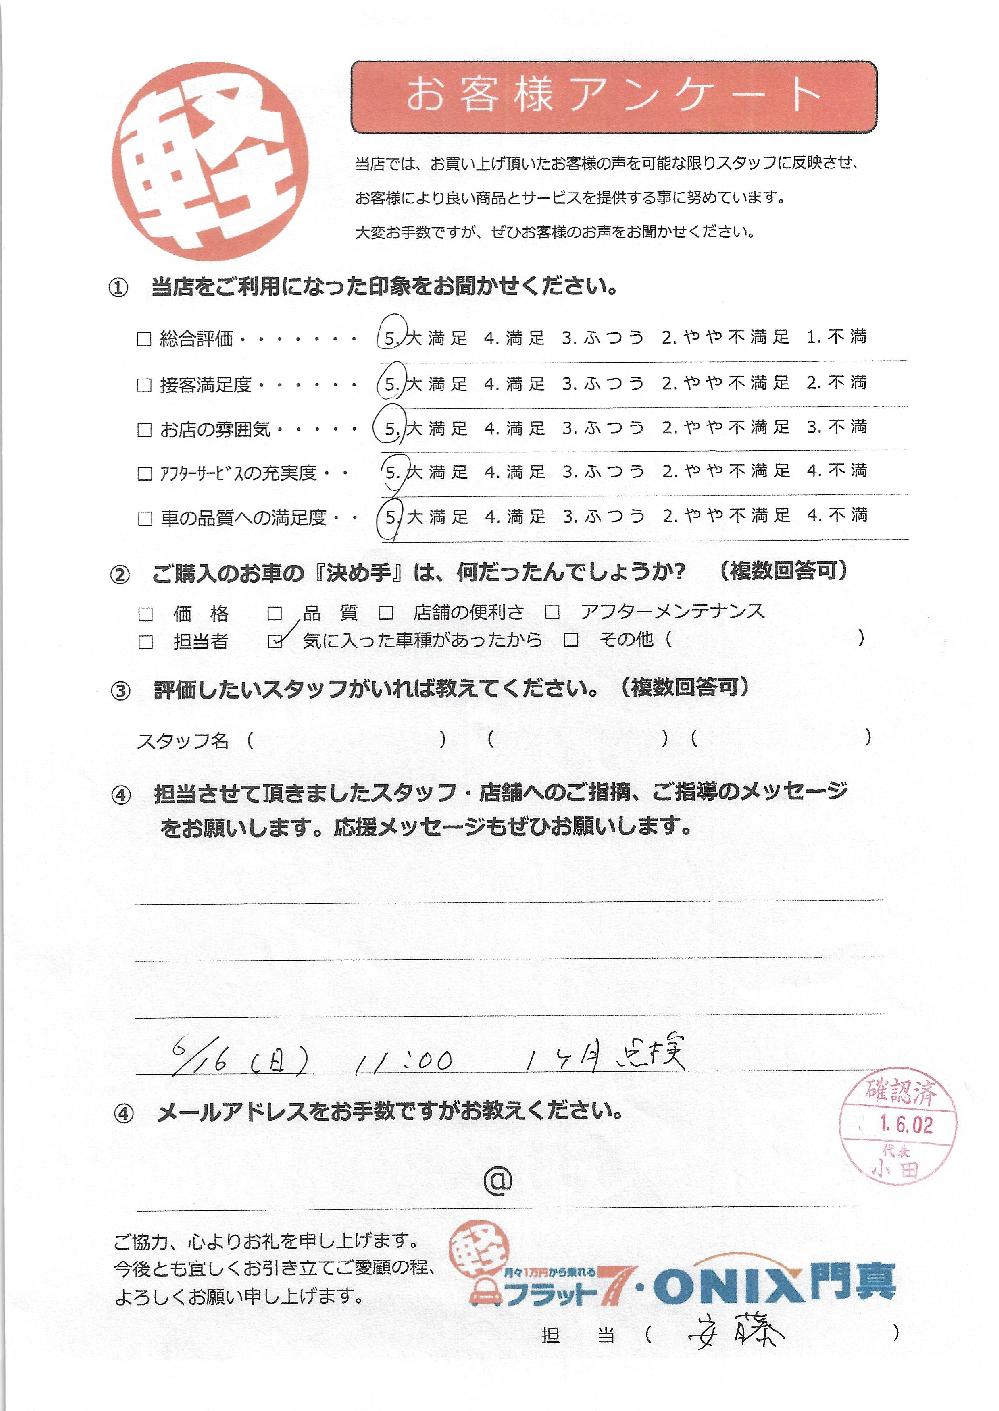 軽
お客様アンケート
当店では、お買い上げ頂いたお客様の声を可能な限りスタッフに反映させ、
お客様により良い商品とサービスを提供する事に努めています。
大変お手数ですが、ぜひお客様のお声をお聞かせください。
① 当店をご利用になった印象をお聞かせください。
□ 総合評価・・・・・・・ 5.大満足 4.満足 3.ふつう 2.やや不満足 1.不満
□ 接客満足度・・・・・・ 5.大満足 4.満足 3.ふつう 2.やや不満足 2.不満
□ お店の雰囲気・・・・・ 5.大満足 4.満足 3.ふつう 2.やや不満足 3.不満
□ ｱﾌﾀｰｻｰﾋﾞｽの充実度・・ 5.大満足 4.満足 3.ふつう 2.やや不満足 4.不満
□ 車の品質への満足度・・ 5.大満足 4.満足 3.ふつう 2.やや不満足 4.不満
② ご購入のお車の『決め手』は、何だったんでしょうか? （複数回答可）
□ 価 格 □ 品 質 □ 店舗の便利さ □ アフターメンテナンス
□ 担当者 ☑ 気に入った車種があったから □ その他（ ）
③ 評価したいスタッフがいれば教えてください。（複数回答可）
スタッフ名（ ） （ ）（ ）
④ 担当させて頂きましたスタッフ・店舗へのご指摘、ご指導のメッセージ
をお願いします。応援メッセージもぜひお願いします。
6/16(日) 11:00 1ヶ月点検
④ メールアドレスをお手数ですがお教えください。
確認済
1.6.02
代表
小田
@
ご協力、心よりお礼を申し上げます。
今後とも宜しくお引き立てご愛顧の程、
よろしくお願い申し上げます。
軽
月々1万円から乗れる
フラット7・ONIX門真
担 当（ 安藤 ）